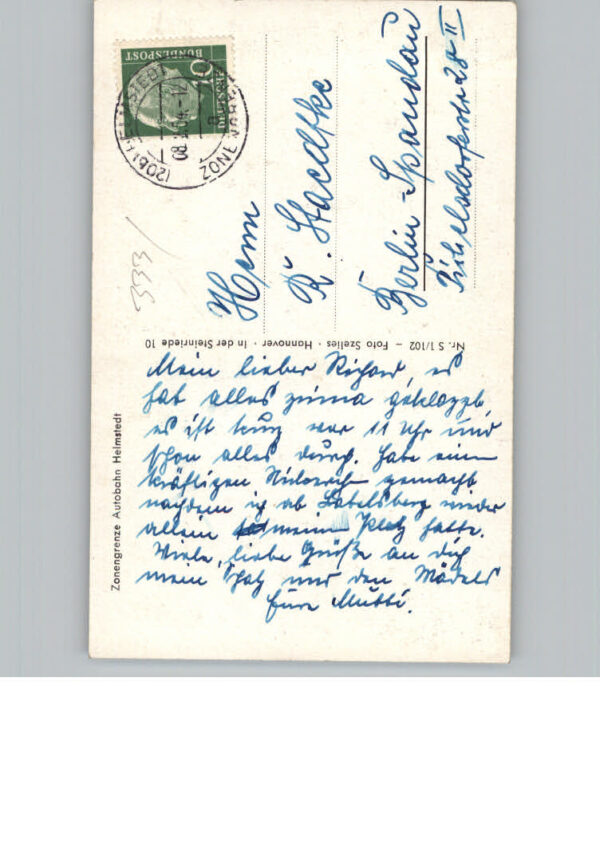 Zonengrenze Autobahn Helmstedt
Nr. S 1/102 – Foto Szelies · Hannover · In der Steinriede 10
DEUTSCHE
BUNDESPOST
10
(20b) HELMSTEDT
ZONENÜBERG
08
333
Herrn
R. Staedtke
Berlin-Spandau
28 II
Mein lieber Richard, es
hat alles prima geklappt,
es ist kurz vor 11 Uhr und
schon alles durch. Habe einen
kräftigen
nachdem ich ab Babelsberg wieder
allein meinen Platz hatte.
Viele, liebe Grüße an dich
mein Schatz und den Mädels
Eure Mutti.